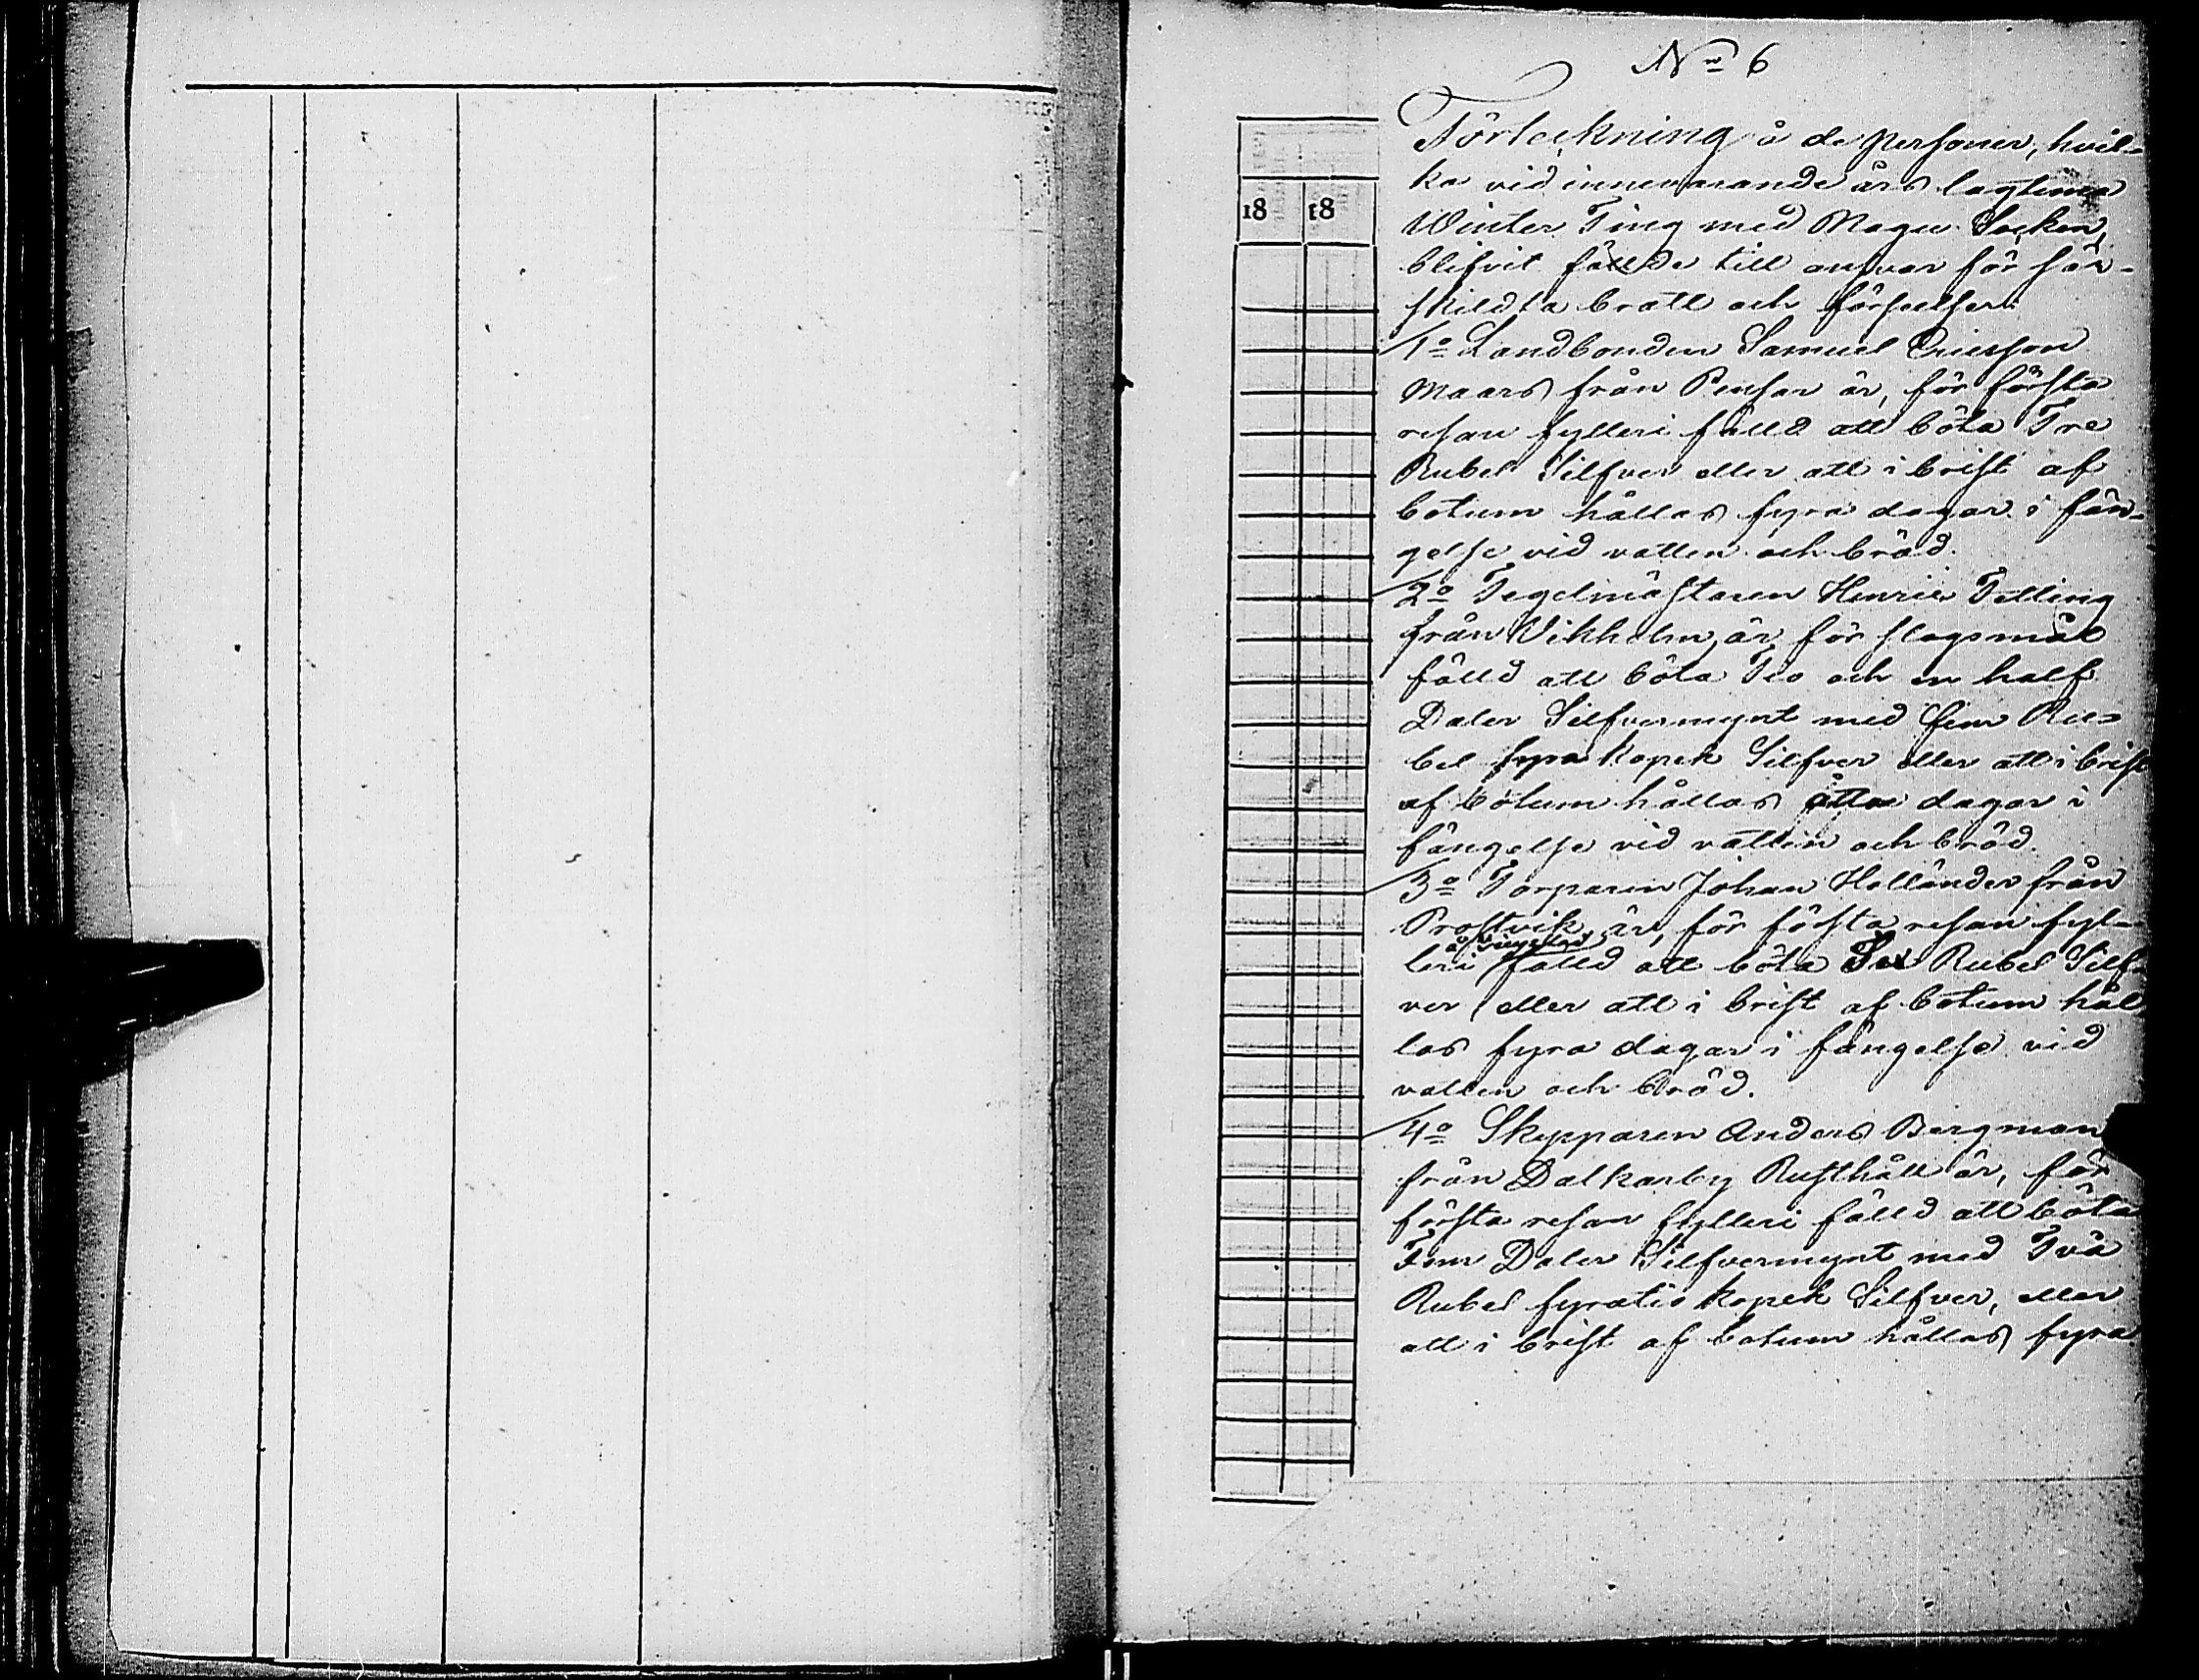 No 6
Förteckning å de personer, hvil-
ka vid innevarande års lagtima
Winter Ting med Nagu Socken,
blifvit fällde till ansvar för sär-
skildta brott och förseelser:
18 18
1o Landbonden Samuel Ericsson
Maars från Pensar är, för första
resan fylleri fälld att böta Tre
Rubel Silfver eller att i brist af
botum hållas fyra dagar i fän-
gelse vid vatten och bröd.
2o Tegelmästaren Henric Telling
från Vikholm, är för slagsmål
fälld att böta Tio och en half
Daler Silfvermynt med fem Ru-
bel fyra kopek Silfver eller att i brist
af botum hållas åtta dagar i
fängelse vid vatten och bröd.
3o Torparen Johan Holländer från
Prostvik, är, för första resan fyl-
å tingsled
leri fälld att böta Sex Rubel Silf-
ver eller att i brist af botum hål
las fyra dagar i fängelse vid
vatten och bröd.
4o Skepparen Anders Bergman
från Dalkarby Rusthåll är, för
första resan fylleri fälld att böta
Fem Daler Silfvermynt med Två
Rubel fyratio kopek Silfver, eller
att i brist af botum hållas fyra